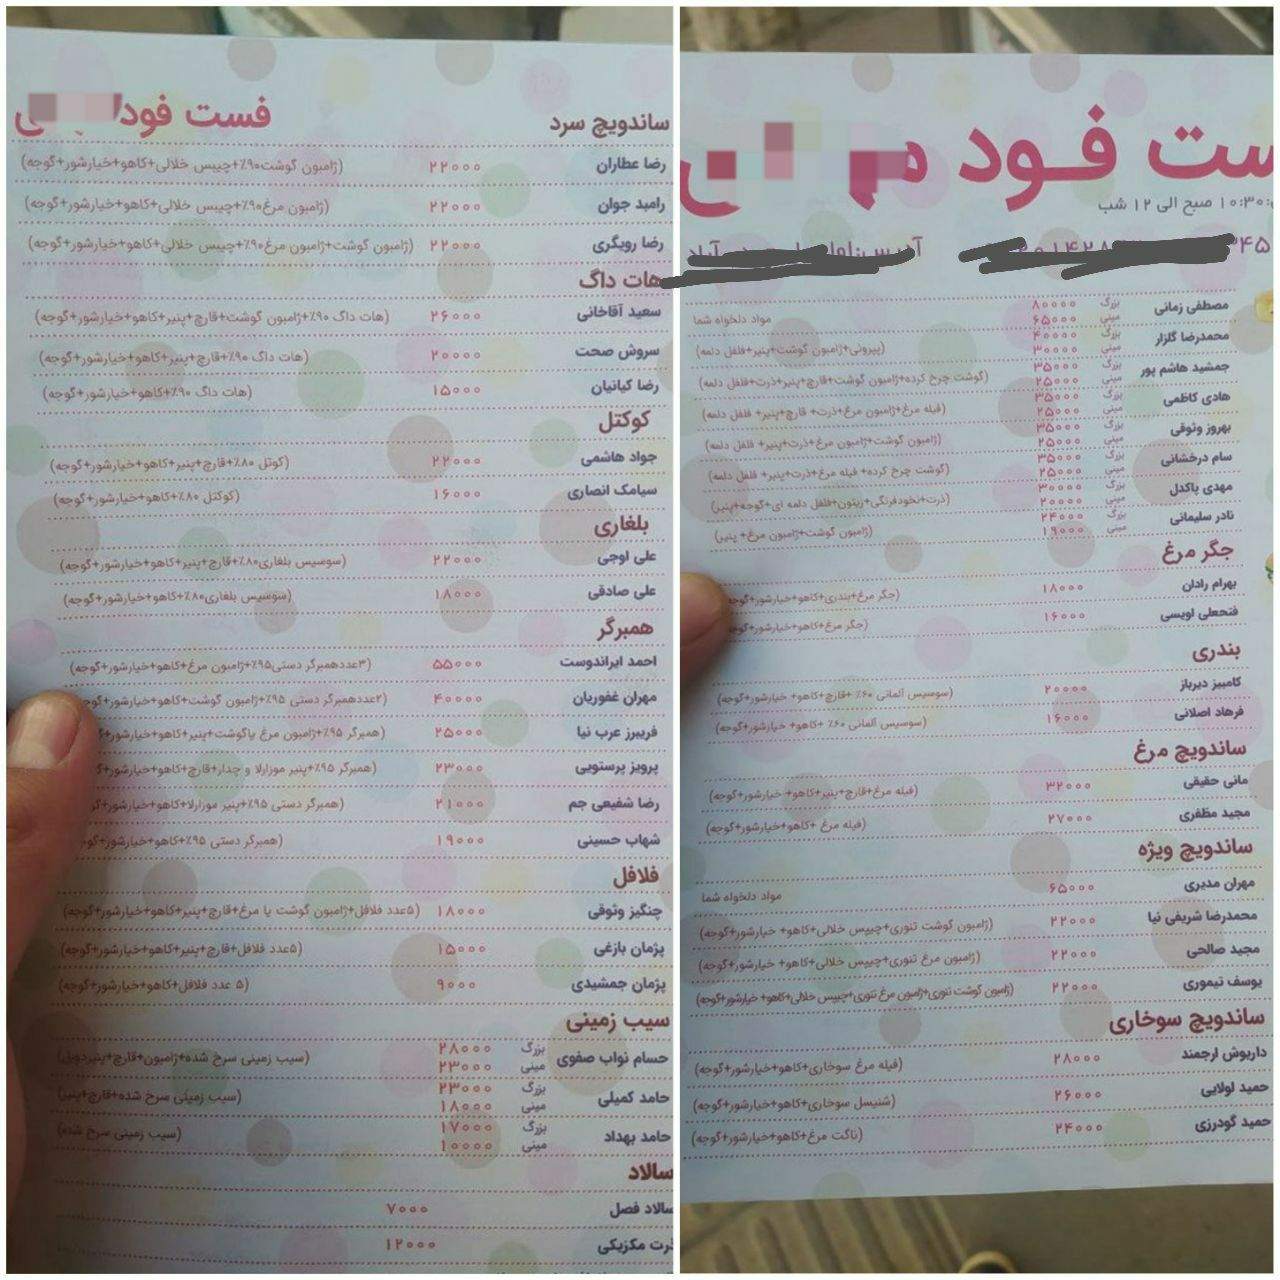 فست فود
ساندویچ سرد
رضا عطاران ۲۲۰۰۰ (ژامبون گوشت۹۰٪+چیپس خلالی+کاهو+خیارشور+گوجه)
رامبد جوان ۲۲۰۰۰ (ژامبون مرغ۹۰٪+چیپس خلالی+کاهو+خیارشور+گوجه)
رضا رویگری ۲۲۰۰۰ (ژامبون گوشت+ژامبون مرغ۹۰٪+چیپس خلالی+کاهو+خیارشور+گوجه)
هات داگ
سعید آقاخانی ۲۶۰۰۰ (هات داگ ۹۰٪+ژامبون گوشت+قارچ+پنیر+کاهو+خیارشور+گوجه)
سروش صحت ۲۰۰۰۰ (هات داگ ۹۰٪+قارچ+پنیر+کاهو+خیارشور+گوجه)
رضا کیانیان ۱۵۰۰۰ (هات داگ ۹۰٪+کاهو+خیارشور+گوجه)
کوکتل
جواد هاشمی ۲۲۰۰۰ (کوتل ۸۰٪+قارچ+پنیر+کاهو+خیارشور+گوجه)
سیامک انصاری ۱۶۰۰۰ (کوکتل ۸۰٪+کاهو+خیارشور+گوجه)
بلغاری
علی اوجی ۲۲۰۰۰ (سوسیس بلغاری۸۰٪+قارچ+پنیر+کاهو+خیارشور+گوجه)
علی صادقی ۱۸۰۰۰ (سوسیس بلغاری۸۰٪+کاهو+خیارشور+گوجه)
همبرگر
احمد ایراندوست ۵۵۰۰۰ (۳عددهمبرگر دستی۹۵٪+ژامبون مرغ+کاهو+خیارشور+گوجه)
مهران غفوریان ۴۰۰۰۰ (۲عددهمبرگر دستی ۹۵٪+ژامبون گوشت+کاهو+خیارشور+گوجه)
فریبرز عرب نیا ۲۵۰۰۰ (همبرگر ۹۵٪+ژامبون مرغ یاگوشت+پنیر+کاهو+خیارشور+گو
پرویز پرستویی ۲۳۰۰۰ (همبرگر ۹۵٪+پنیر موزارلا و چدار+قارچ+کاهو+خیارشور+گو
رضا شفیعی جم ۲۱۰۰۰ (همبرگر دستی ۹۵٪+پنیر موزارلا+کاهو+خیارشور+گو
شهاب حسینی ۱۹۰۰۰ (همبرگر دستی ۹۵٪+کاهو+خیارشور+گو
فلافل
چنگیز وثوقی ۱۸۰۰۰ (۵عدد فلافل+ژامبون گوشت یا مرغ+قارچ+پنیر+کاهو+خیارشور+گوجه)
پژمان بازغی ۱۵۰۰۰ (۵عدد فلافل+قارچ+پنیر+کاهو+خیارشور+گوجه)
پژمان جمشیدی ۹۰۰۰ (۵ عدد فلافل+کاهو+خیارشور+گوجه)
سیب زمینی
حسام نواب صفوی بزرگ ۲۸۰۰۰ (سیب زمینی سرخ شده+ژامبون+قارچ+پنیر
مینی ۲۳۰۰۰
حامد کمیلی بزرگ ۲۳۰۰۰ (سیب زمینی سرخ شده+قارچ+پنیر)
مینی ۱۸۰۰۰
حامد بهداد بزرگ ۱۷۰۰۰ (سیب زمینی سرخ شده)
مینی ۱۰۰۰۰
سالاد
سالاد فصل ۷۰۰۰
ذرت مکزیکی ۱۲۰۰۰
ست فود
۱۰:۳۰ صبح الی ۱۲ شب
۳۴۵
آدرس:
مصطفی زمانی بزرگ ۸۰۰۰۰ مواد دلخواه شما
مینی ۶۵۰۰۰
محمدرضا گلزار بزرگ ۴۰۰۰۰ (پپرونی+ژامبون گوشت+پنیر+فلفل دلمه)
مینی ۳۰۰۰۰
جمشید هاشم پور بزرگ ۳۵۰۰۰ (گوشت چرخ کرده+ژامبون گوشت+قارچ+پنیر+ذرت+فلفل دلمه)
مینی ۲۵۰۰۰
هادی کاظمی بزرگ ۳۵۰۰۰ (فیله مرغ+ژامبون مرغ+ذرت+ قارچ+پنیر+ فلفل دلمه)
مینی ۲۵۰۰۰
بهروز وثوقی بزرگ ۳۵۰۰۰ (ژامبون گوشت+ژامبون مرغ+ذرت+پنیر+ فلفل دلمه)
مینی ۲۵۰۰۰
سام درخشانی بزرگ ۳۵۰۰۰ (گوشت چرخ کرده+ فیله مرغ+ذرت+پنیر+ فلفل دلمه)
مینی ۲۵۰۰۰
مهدی پاکدل بزرگ ۳۰۰۰۰ (ذرت+نخودفرنگی+زیتون+فلفل دلمه ای+گوجه+پنیر)
مینی ۲۰۰۰۰
نادر سلیمانی بزرگ ۲۴۰۰۰ (ژامبون گوشت+ژامبون مرغ+ پنیر)
مینی ۱۹۰۰۰
جگر مرغ
بهرام رادان ۱۸۰۰۰ (جگر مرغ+بندری+کاهو+خیارشور+گوجه)
فتحعلی اویسی ۱۶۰۰۰ (جگر مرغ+کاهو+خیارشور+گوجه)
بندری
کامبیز دیرباز ۲۰۰۰۰ (سوسیس آلمانی ۶۰٪ +قارچ+کاهو+ خیارشور+گوجه)
فرهاد اصلانی ۱۶۰۰۰ (سوسیس آلمانی ۶۰٪ +کاهو+ خیارشور+گوجه)
ساندویچ مرغ
مانی حقیقی ۳۲۰۰۰ (فیله مرغ+قارچ+پنیر+کاهو+ خیارشور+گوجه)
مجید مظفری ۲۷۰۰۰ (فیله مرغ +کاهو+خیارشور+گوجه)
ساندویچ ویژه
مهران مدیری ۶۵۰۰۰ مواد دلخواه شما
محمدرضا شریفی نیا ۲۲۰۰۰ (ژامبون گوشت تنوری+چیپس خلالی+کاهو+ خیارشور+گوجه)
مجید صالحی ۲۲۰۰۰ (ژامبون مرغ تنوری+چیپس خلالی+کاهو+ خیارشور+گوجه)
یوسف تیموری ۲۲۰۰۰ (ژامبون گوشت تنوری+ژامبون مرغ تنوری+چیپس خلالی+کاهو+ خیارشور+گوجه)
ساندویچ سوخاری
داریوش ارجمند ۲۸۰۰۰ (فیله مرغ سوخاری+کاهو+خیارشور+گوجه)
حمید لولایی ۲۶۰۰۰ (شنیسل سوخاری+کاهو+خیارشور+گوجه)
حمید گودرزی ۲۴۰۰۰ (ناگت مرغ+کاهو+خیارشور+گوجه)